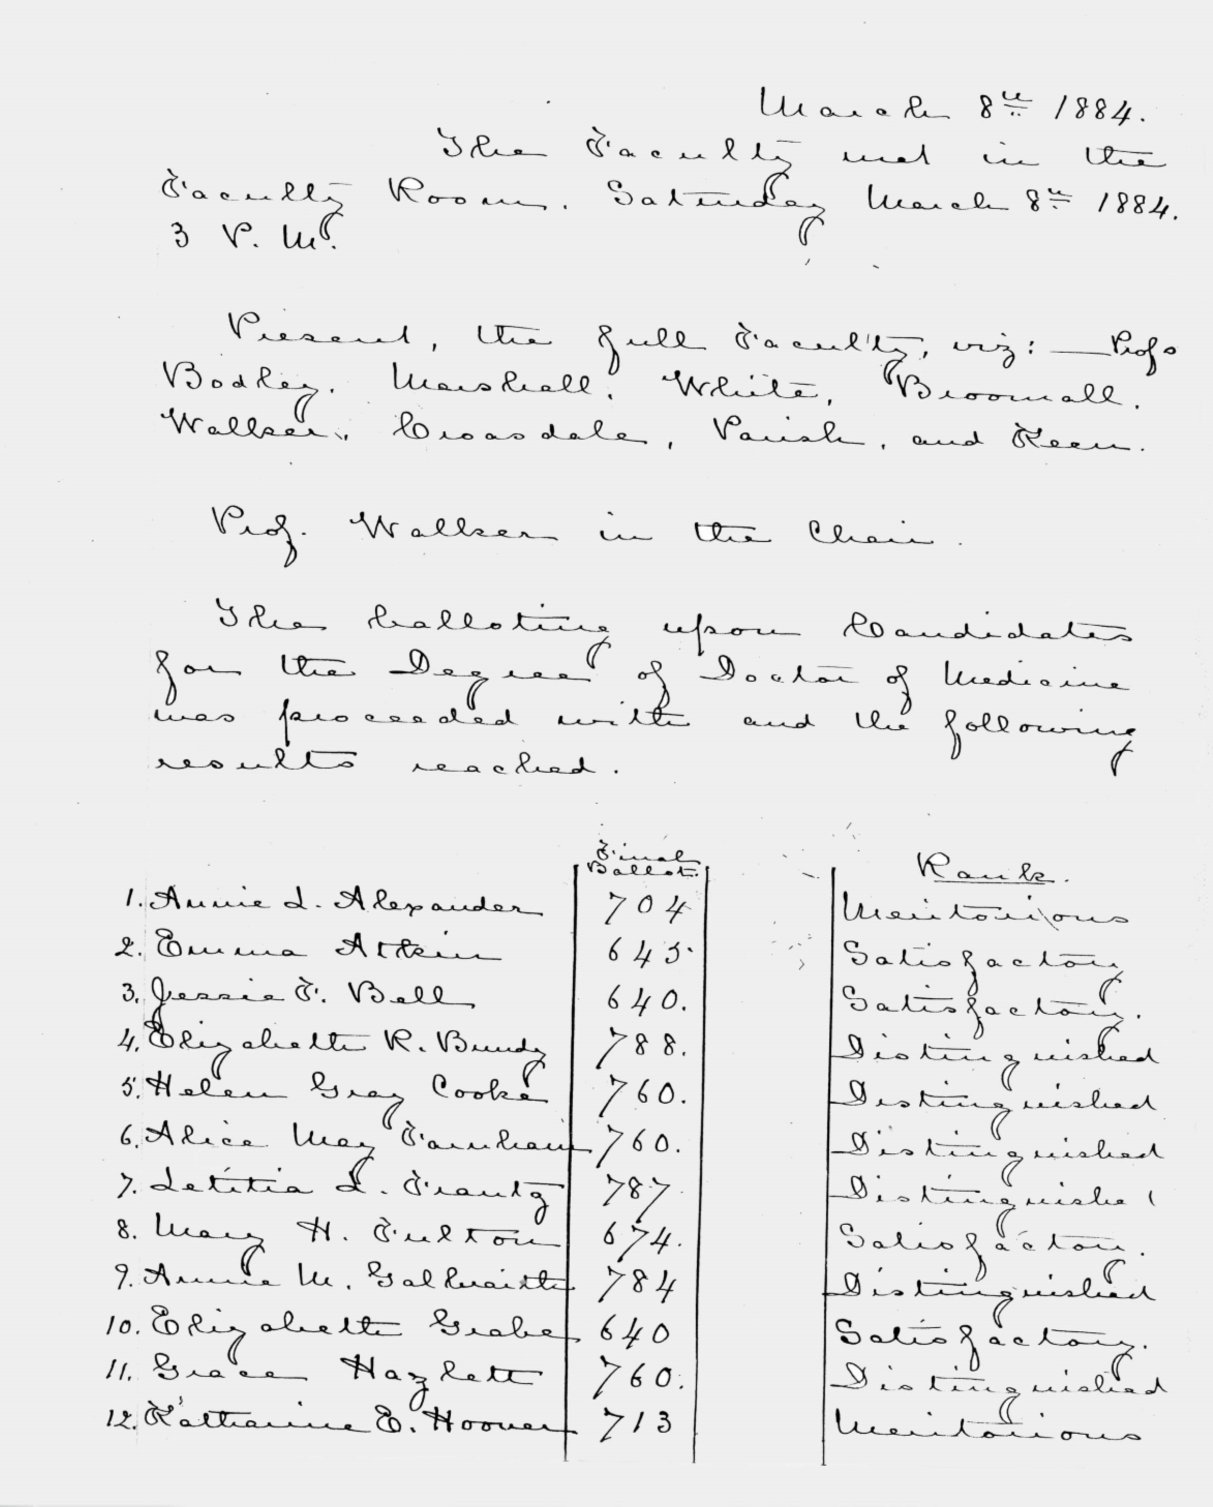 March 8th 1884.
The Faculty met in the
Faculty Room. Saturday March 8th 1884.
3 P. M.
Present, the full Faculty, viz: — Profs
Bodley. Marshall. White, Broomall.
Walker. Croasdale, Parish, and Keen.
Prof. Walker in the Chair.
The balloting upon Candidates
for the Degree of Doctor of Medicine
was proceeded with and the following
results reached.
Final
Ballot. Rank.
1. Annie L. Alexander 704 Meritorious
2. Emma Atkin 645. Satisfactory
3. Jessie F. Bell 640. Satisfactory.
4. Elizabeth R. Bundy 788. Distinguished
5. Helen Gray Cooke 760. Distinguished
6. Alice May Farnham 760. Distinguished
7. Letitia L. Frantz 787 Distinguished
8. Mary H. Fulton 674. Satisfactory.
9. Annie M. Galbraith 784 Distinguished
10. Elizabeth Grabe 640 Satisfactory.
11. Grace Hazlett 760. Distinguished
12. Katharine E. Hoover 713 Meritorious